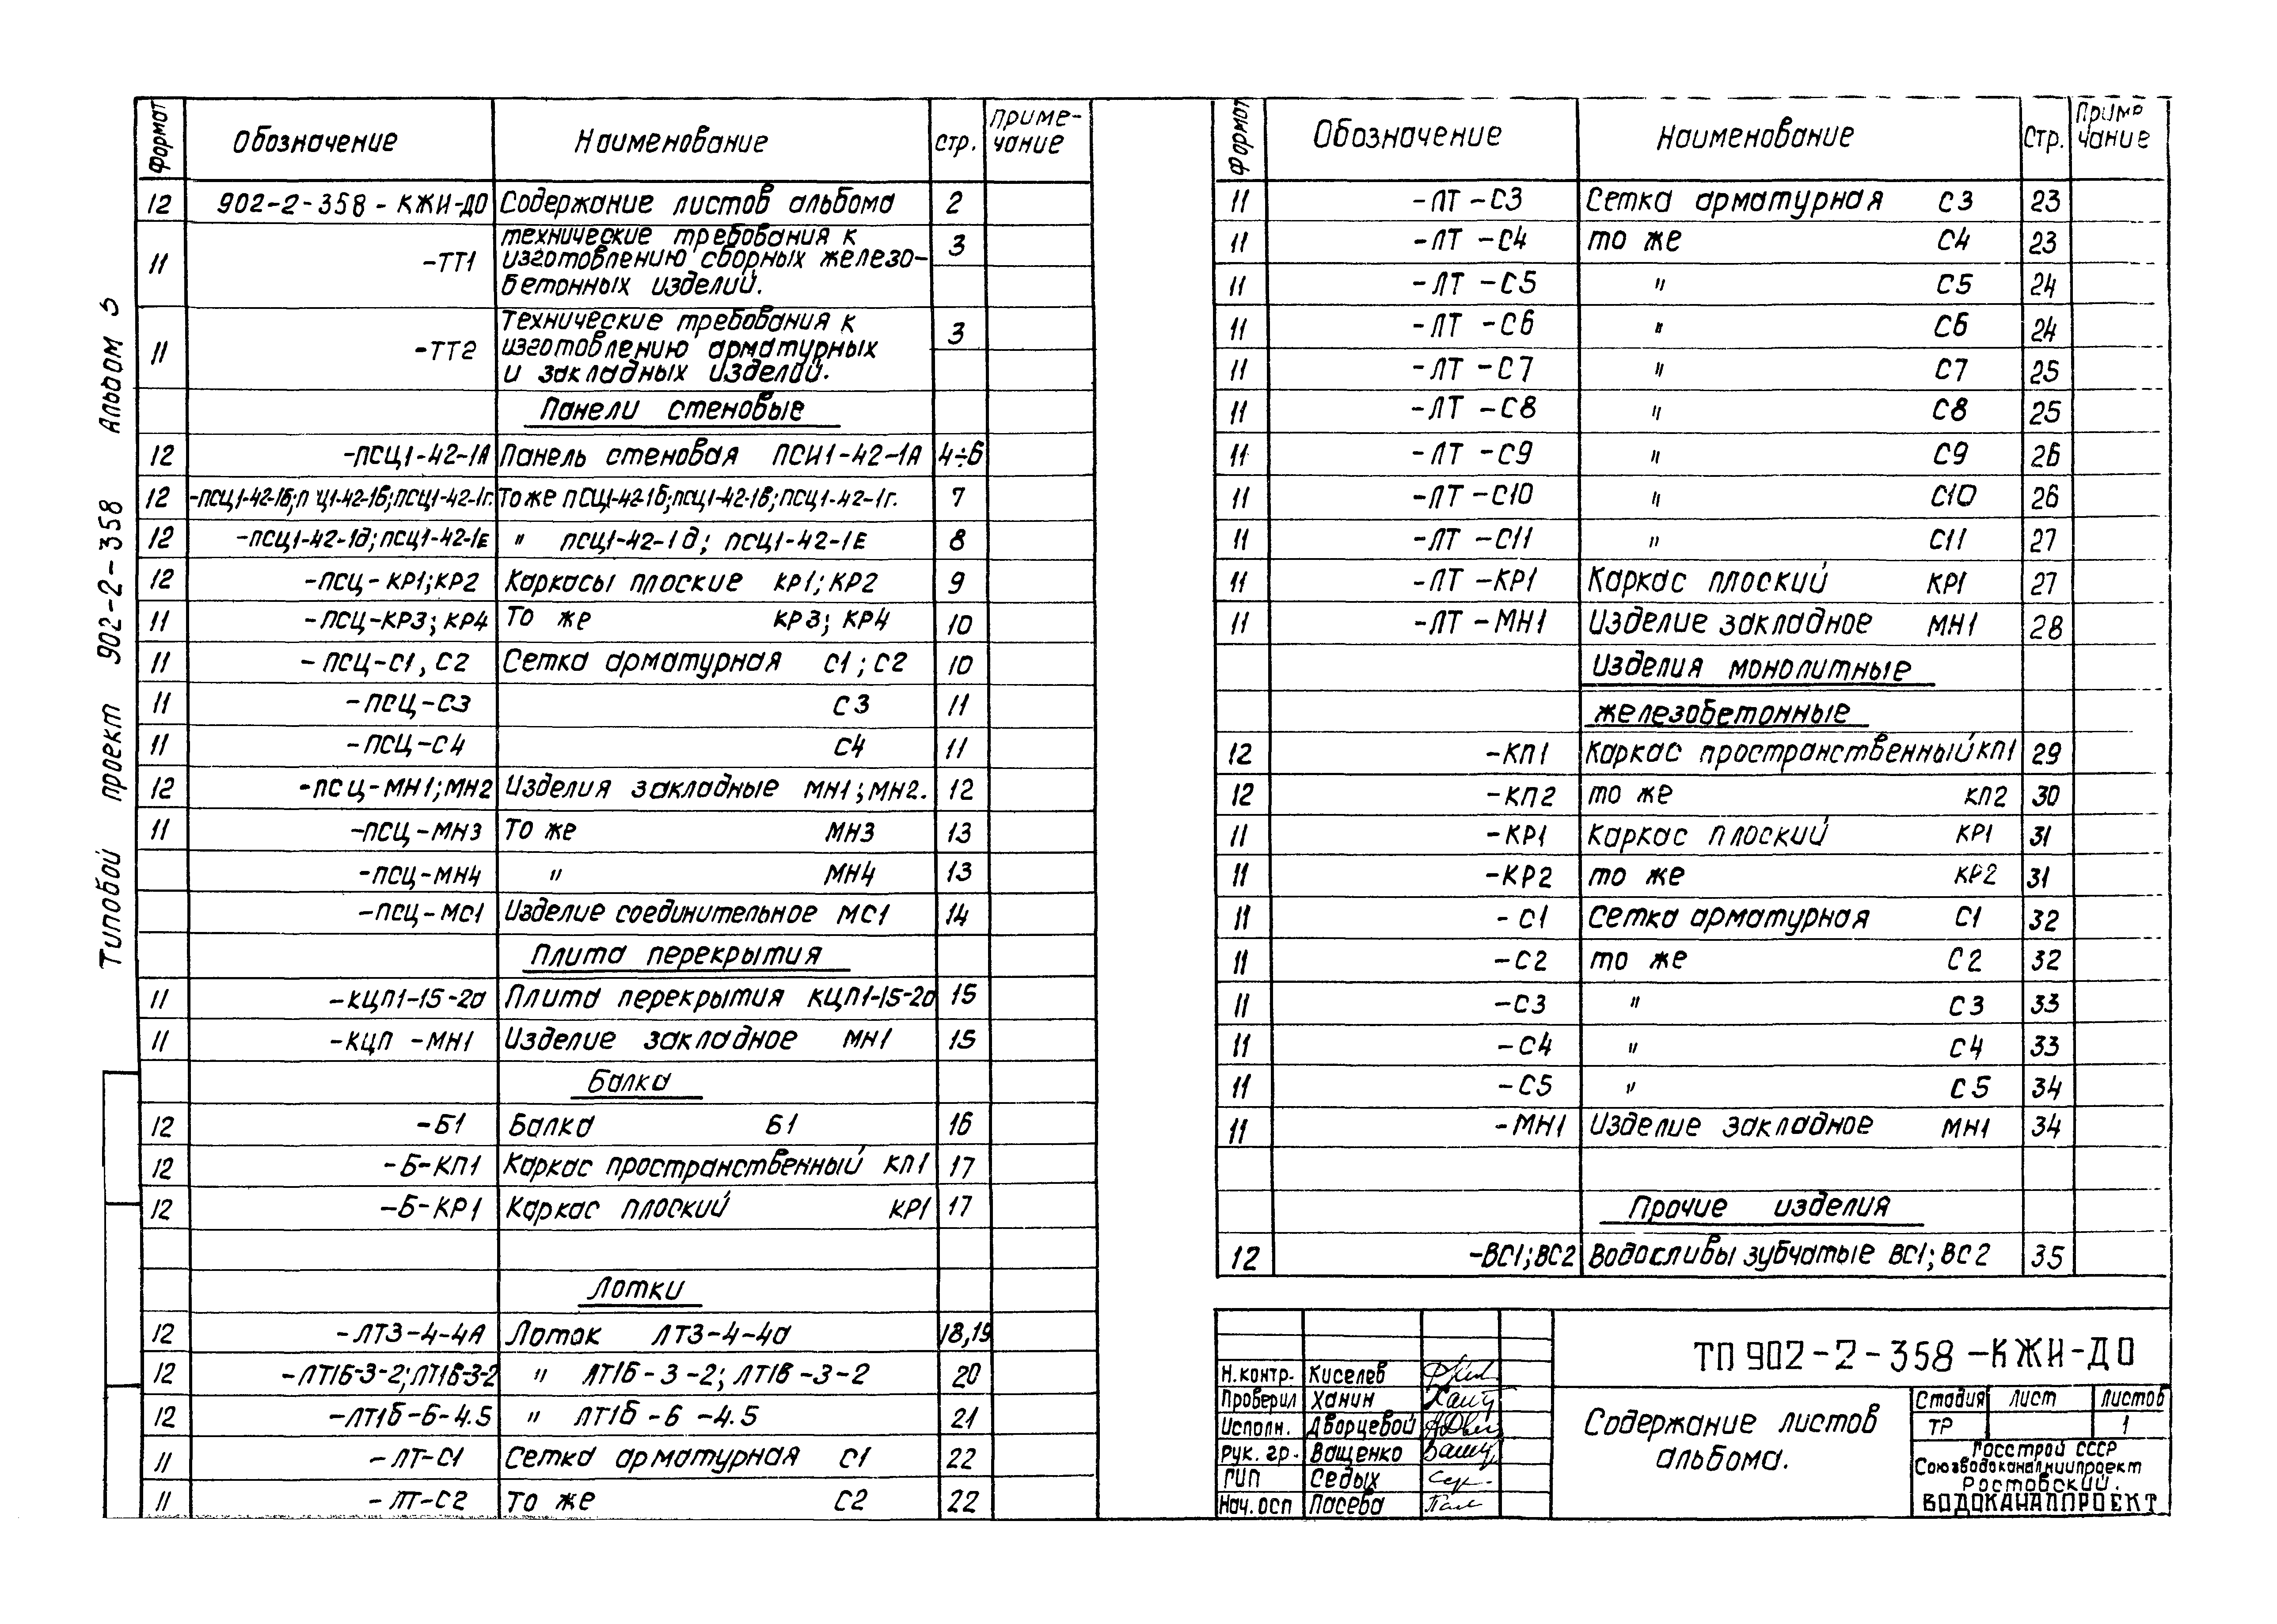 Типовой проект 902-2-358 Альбом 5
Формат Обозначение Наименование стр. Приме-
чание
12 902-2-358-КЖИ-ДО Содержание листов альбома 2
11 -ТТ1 технические требования к 3
изготовлению сборных железо-
бетонных изделий.
11 -ТТ2 Технические требования к 3
изготовлению арматурных
и закладных изделий.
Панели стеновые
12 -ПСЦ1-42-1А Панель стеновая ПСИ1-42-1А 4÷6
12 -ПСЦ1-42-1б;П Ц1-42-1в;ПСЦ1-42-1г. То же ПСЦ1-42-1б;ПСЦ1-42-1в;ПСЦ1-42-1г. 7
12 -ПСЦ1-42-1д;ПСЦ1-42-1Е " ПСЦ1-42-1д; ПСЦ1-42-1Е 8
12 -ПСЦ-КР1;КР2 Каркасы плоские КР1;КР2 9
11 -ПСЦ-КР3;КР4 То же КР3; КР4 10
11 -ПСЦ-С1, С2 Сетка арматурная С1; С2 10
11 -ПСЦ-С3 С3 11
11 -ПСЦ-С4 С4 11
12 -ПСЦ-МН1;МН2 Изделия закладные МН1;МН2. 12
11 -ПСЦ-МН3 То же МН3 13
-ПСЦ-МН4 " МН4 13
-ПСЦ-МС1 Изделие соединительное МС1 14
Плита перекрытия
11 -КЦП1-15-2а Плита перекрытия КЦП1-15-2а 15
11 -КЦП -МН1 Изделие закладное МН1 15
Балка
12 -Б1 Балка Б1 16
12 -Б-КП1 Каркас пространственный КП1 17
12 -Б-КР1 Каркас плоский КР1 17
Лотки
12 -ЛТ3-4-4А Лоток ЛТ3-4-4а 18,19
12 -ЛТ1Б-3-2;ЛТ1В-3-2 " ЛТ1Б-3-2; ЛТ1В-3-2 20
12 -ЛТ1б-6-4.5 " ЛТ1б-6-4.5 21
11 -ЛТ-С1 Сетка арматурная С1 22
11 -ЛТ-С2 То же С2 22
Формат Обозначение Наименование Стр. Приме
чание
11 -ЛТ-С3 Сетка арматурная С3 23
11 -ЛТ-С4 то же С4 23
11 -ЛТ-С5 " С5 24
11 -ЛТ-С6 " С6 24
11 -ЛТ-С7 " С7 25
11 -ЛТ-С8 " С8 25
11 -ЛТ-С9 " С9 26
11 -ЛТ-С10 " С10 26
11 -ЛТ-С11 " С11 27
11 -ЛТ-КР1 Каркас плоский КР1 27
11 -ЛТ-МН1 Изделие закладное МН1 28
Изделия монолитные
железобетонные
12 -КП1 Каркас пространственный КП1 29
12 -КП2 то же КП2 30
11 -КР1 Каркас плоский КР1 31
11 -КР2 то же КР2 31
11 -С1 Сетка арматурная С1 32
11 -С2 то же С2 32
11 -С3 " С3 33
11 -С4 " С4 33
11 -С5 " С5 34
11 -МН1 Изделие закладное МН1 34
Прочие изделия
12 -ВС1;ВС2 Водосливы зубчатые ВС1; ВС2 35
ТП 902-2-358-КЖИ-ДО
Н.контр. Киселев
Проверил Ханин
Исполн. Дворцевой
Рук. гр. Ващенко
ГИП Седых
Нач. осп Пасева
Содержание листов
альбома.
Стадия лист листов
ТР 1
Госстрой СССР
Союзводоканалниипроект
Ростовский.
ВОДОКАНАЛПРОЕКТ